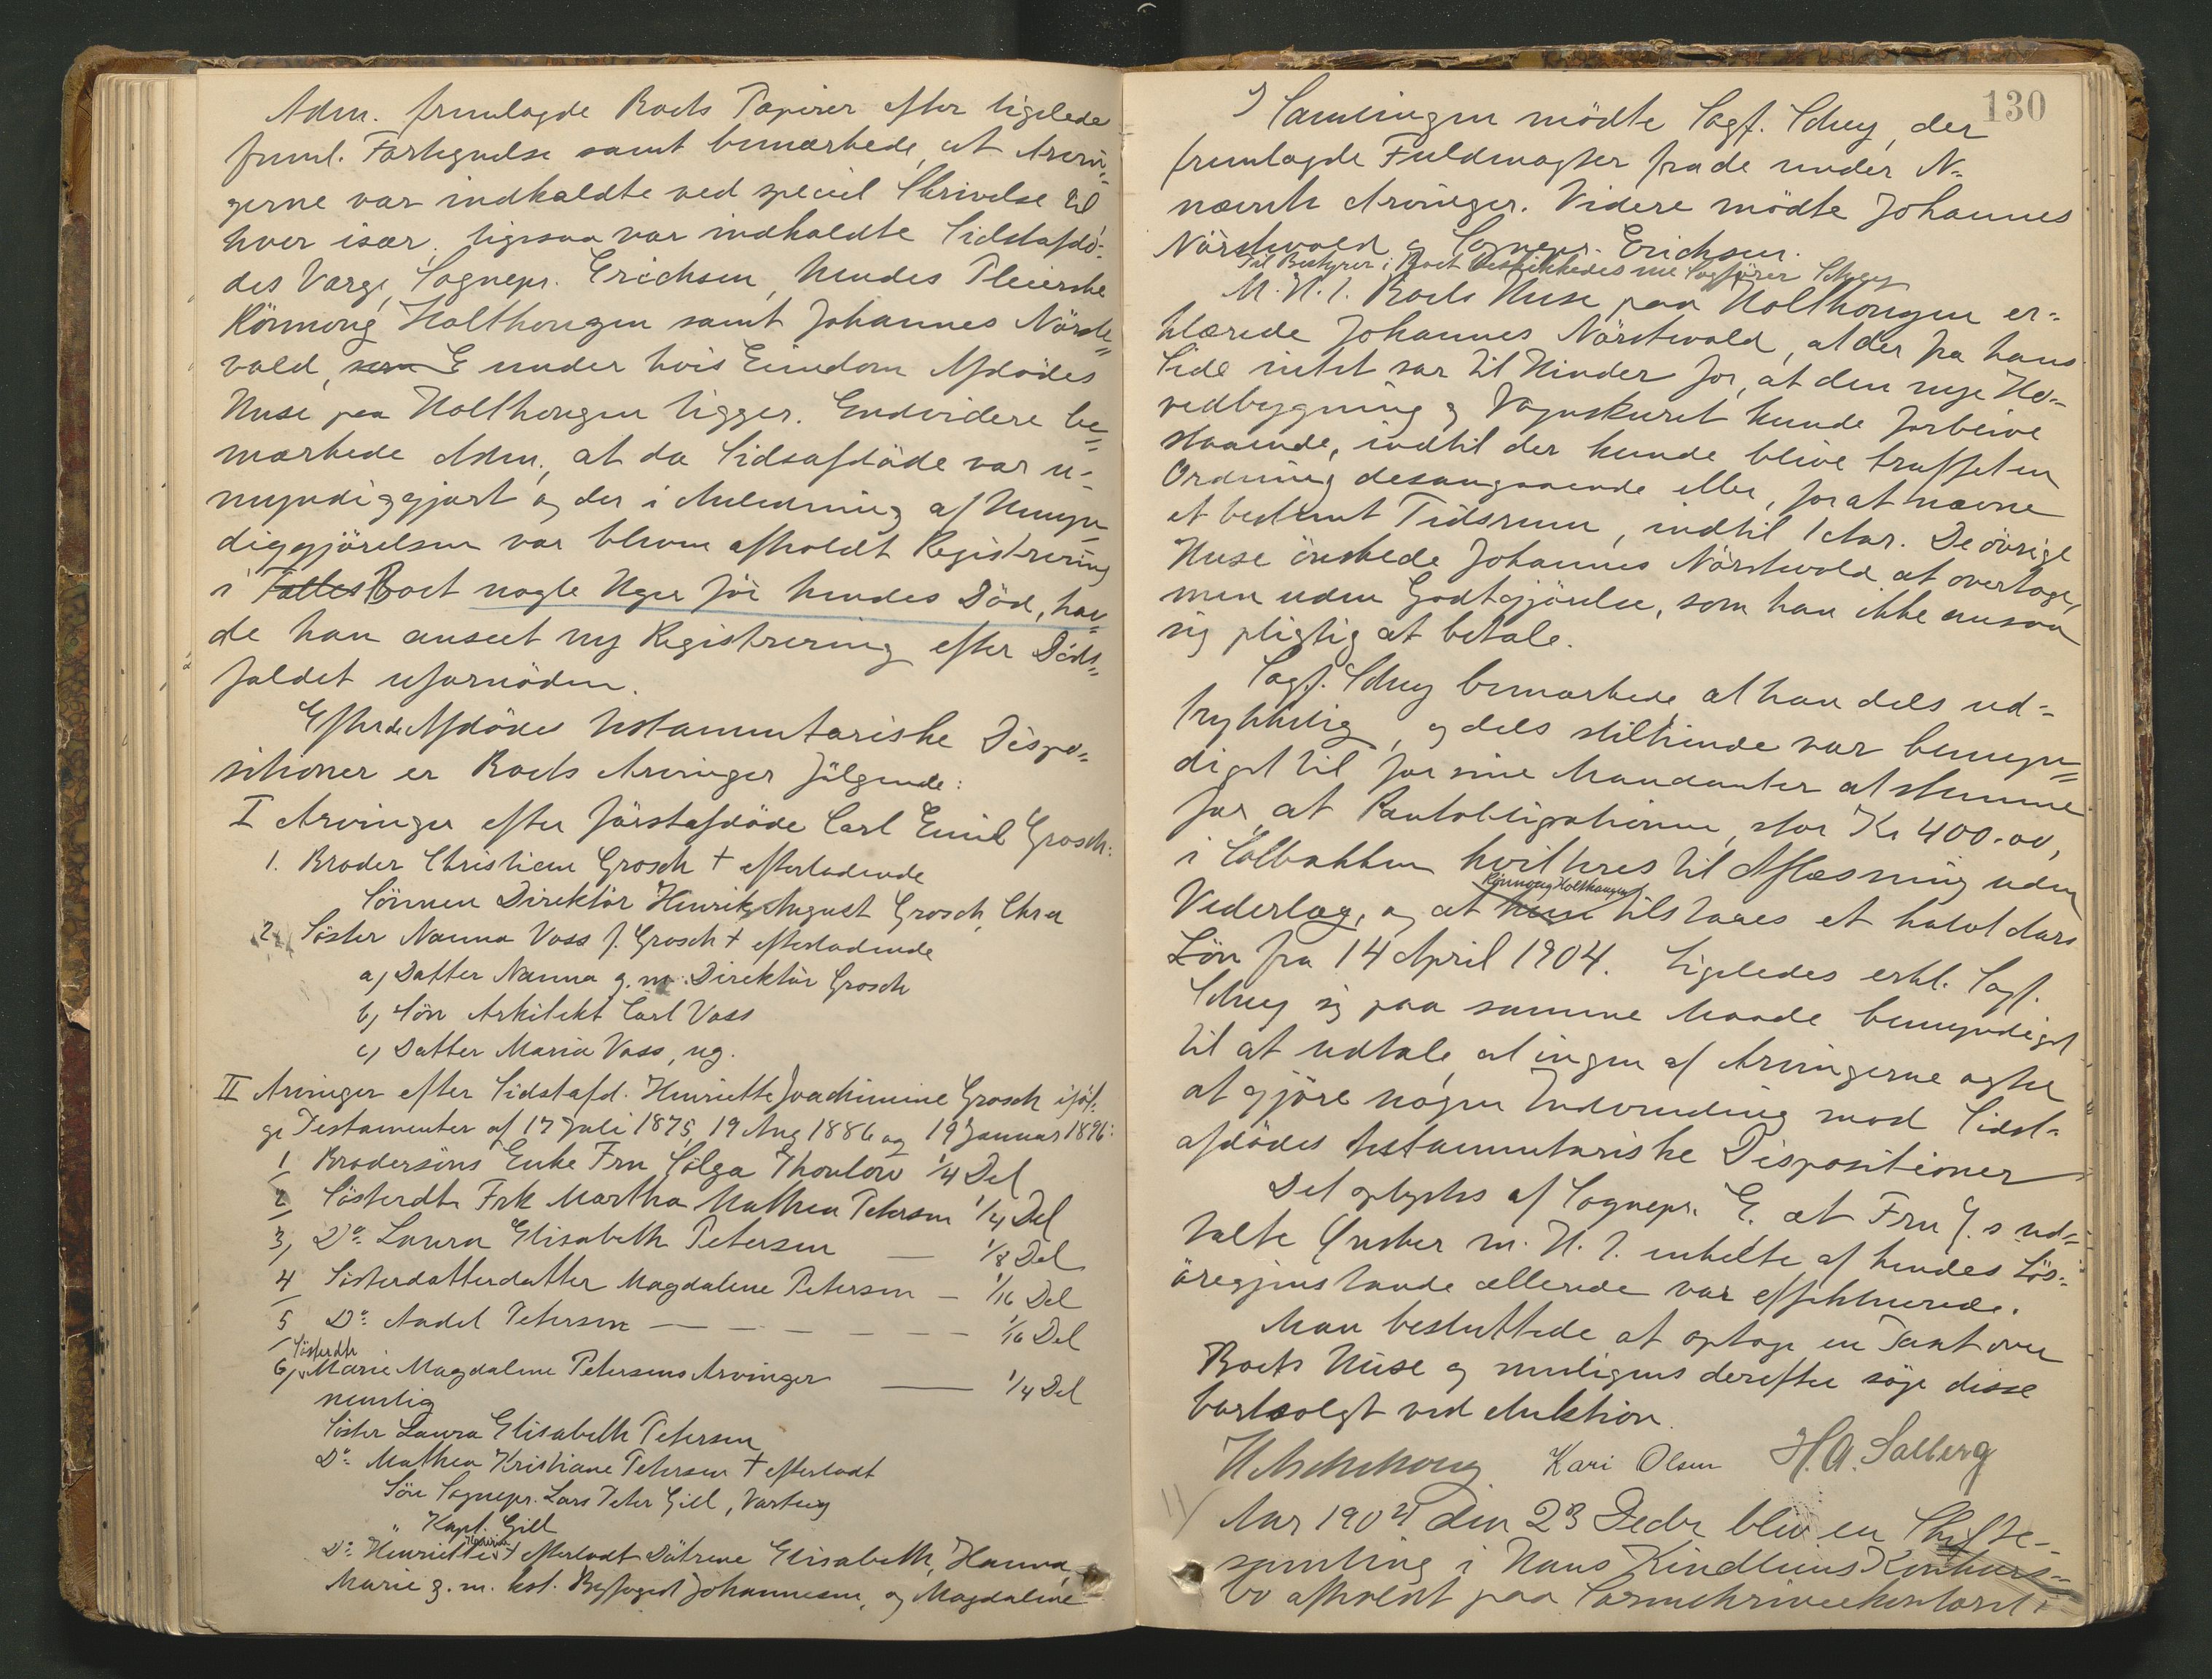 Adm. fremlagde Boets Papirer efter ligelede
freml. Fortegnelse samt bemærkede, at Arvin-
gerne var indkaldte ved speciel Skrivelse til
hver især, ligesaa var indkaldte Sidstafdö-
des Værge, Sognepr. Erichsen, hendes Pleierske
Rönnoug Holthougen samt Johannes Nörste-
vold, under hvis Eiendom Afdödes
Huse paa Holthougen ligger. Endvidere be-
mærkede Adm., at da Sidsafdöde var u-
myndiggjort og der i Anledning af Umyn-
diggjörelsen var bleven afholdt Registrering
i Fælles Boet nogle Uger för hendes Död, hav-
de han anseet ny Registrering efter Döds-
faldet ufornöden.
Efter de Afdödes testamentariske Dispo-
sitioner er Boets Arvinger fölgende:
I Arvinger efter förstafdöde Carl Emil Grosch:
1. Broder Christian Grosch † efterladende
Sönnen Direktör Henrik August Grosch, Chra
2. Söster Nanna Voss f. Grosch † efterladende
a, Datter Nanna g. m. Direktör Grosch
b, Sön Arkitekt Carl Voss
c, Datter Maria Voss, ug.
II Arvinger efter Sidstafd. Henriette Joachimine Grosch iföl-
ge Testamenter af 17 Juli 1875, 19 Aug 1886 og 19 Januar 1896:
1 Brodersöns Enke Fru Hølga Thoulow 1/4 Del
2 Søsterdtr Frk Martha Mathea Petersen 1/4 Del
3, Do Laura Elisabeth Petersen — 1/8 Del
4 Sösterdatterdatter Magdalene Petersen — 1/16 Del
5 Do Andel Petersen — — — — — 1/16 Del
Sösterdtr
6, Marie Magdalene Petersens Arvinger — 1/4 Del
nemlig
Söster Laura Elisabeth Petersen
Do Mathea Kristiane Petersen † efterladt
Sön Sognepr. Lars Peter Gill, Varteig
" Kapt. Gill
Do Henriette † efterladt Dötrene Elisabeth, Hanna
Marie g. m. kst. Byfoged Johannesen, og Magdalene
130
I Samlingen mödte Sagf. Schey, der
fremlagde Fuldmagter fra de under N-
nævnte Arvinger. Videre mödte Johannes
Nörstevold og Sognepr. Erichsen.
Til Bestyrer i Boet beskikkedes nu Sagförer Schey
M. H. t. Boets Huse paa Holthougen er-
klærede Johannes Nörstevold, at der fra hans
Side intet var til Hinder for, at den nye Ho-
vedbygning og Vognskuret kunde forblive
staaende, indtil der kunde blive truffet en
Ordning desangaaende eller, for at nævne
et bestemt Tidsrum, indtil 1 Aar. De övrige
Huse önskede Johannes Nörstevold at overtage,
men uden Godtgjörelse, som han ikke ansaa
sig pligtig at betale.
Sagf. Schey bemærkede, at han dels ud-
trykkelig, og dels stiltiende var bemyn-
diget til for sine Mandanter at stemme
for at Pantobligationen, stor Kr 400.00,
i Solbakken kvitteres til Aflæsning uden
Rönnoug Holthaugen
Vederlag, og at hende tilstaaes et halvt Aars
Lön fra 14 April 1904. Ligeledes erkl. Sagf.
Schey sig paa samme Maade bemyndiget
til at udtale, at ingen af Arvingerne agter
at gjöre nogen Indvending mod Sidst-
afdödes testamentariske Dispositioner
Det oplystes af Sognepr. E. at Fru G.s ud-
talte Önsker m. H. t. enkelte af hendes Lös-
öregjenstande allerede var effektuerede.
Man besluttede at optage en Taxt over
Boets Huse og muligens derefter söge disse
bortsolgt ved Auktion.
Kari Olsen H.A. Solberg
Aar 1904 den 23 Decbr blev en Skifte-
samling i Hans Kindliens Konkurs-
bo afholdt paa Sorenskriverkontoret i